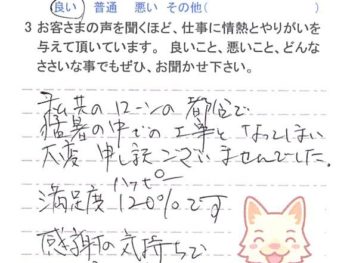 良い 普通 悪い その他( )
3 お客さまの声を聞くほど、仕事に情熱とやりがいを
与えて頂いています。 良いこと、悪いこと、どんな
ささいな事でもぜひ、お聞かせ下さい。
私共のローンの都合で
猛暑の中での工事となってしまい
大変申し訳ございませんでした。
満足度 120%です
感謝の気持ちで